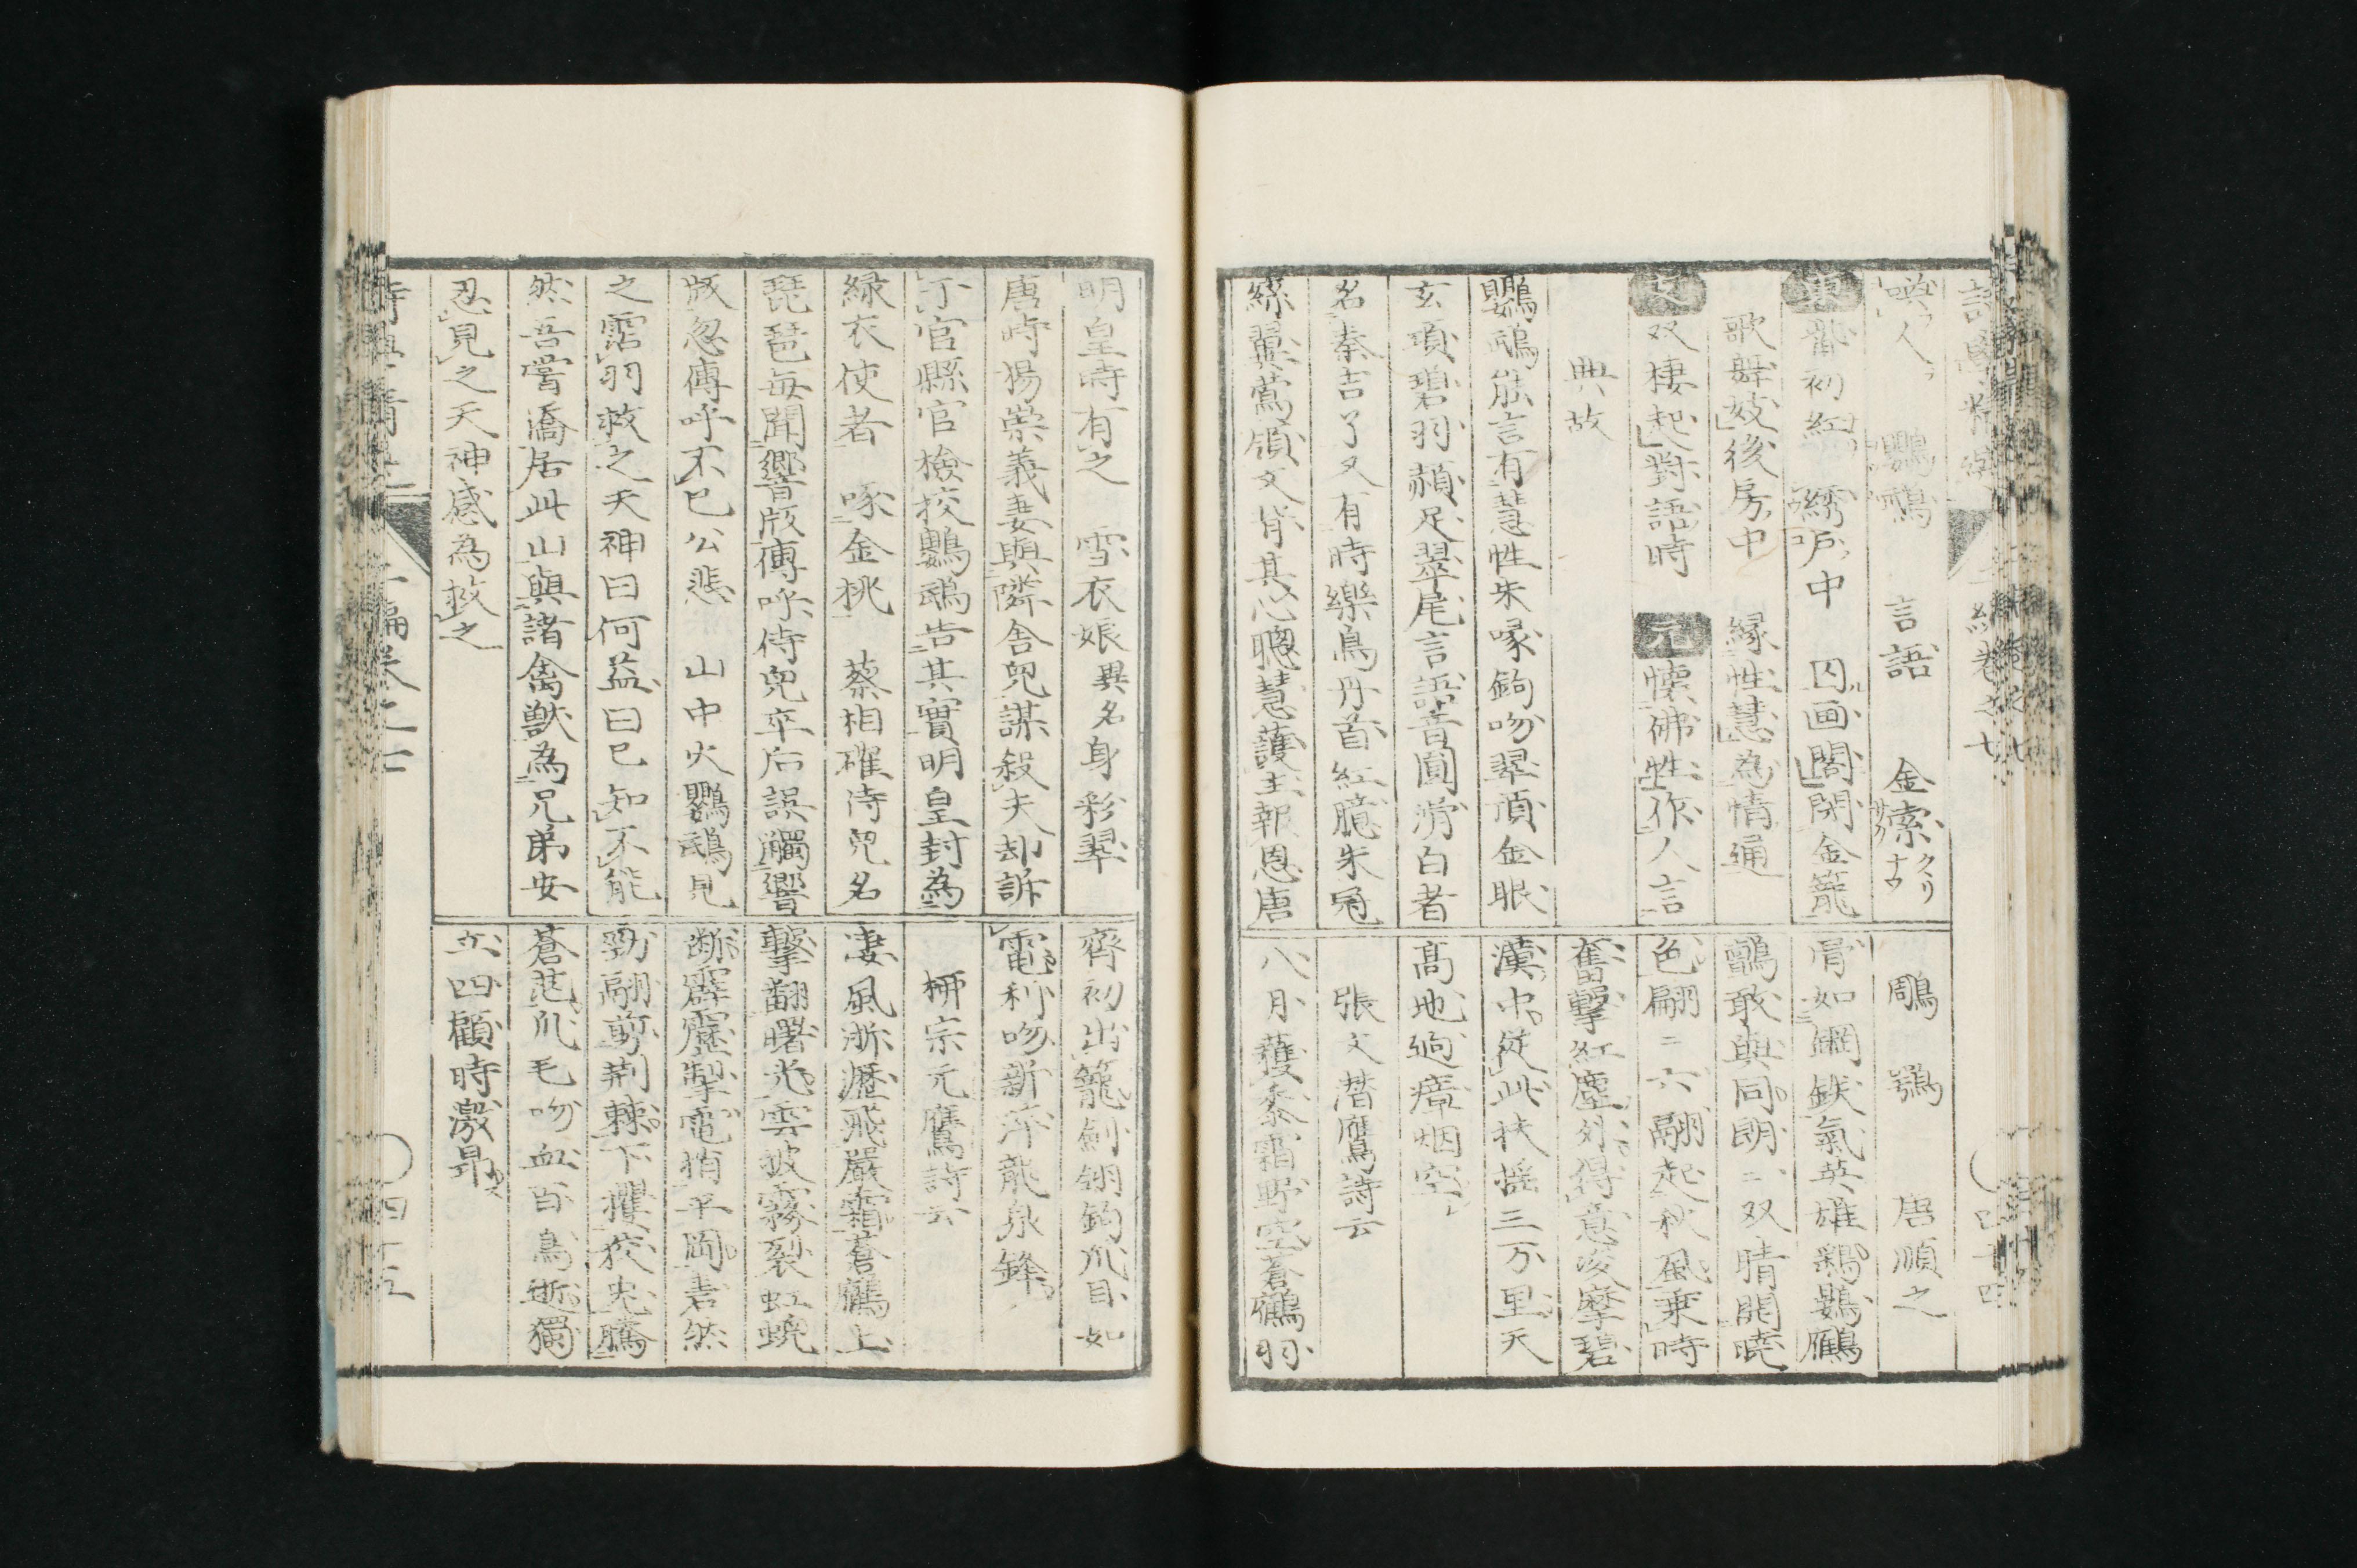 喚人 鸚鵡 言語 金索
東 龍初紅 綉戸中 囚画閣 閉金籠
歌舞妓後房中 縁性慧為情通
支 双棲起對語時 元 懐佛性作人言
典故
鸚鵡能言有慧性朱喙鉤吻翠頂金眼
玄項碧羽頳足翠尾言語音圓滑白者
名秦吉了又有時樂鳥丹首紅臆朱冠
緑翼鶯領文背其心聰慧護主報恩唐
鵰鶚 唐順之
骨如鋼鉄氣英雄鶏鷃鷹
鸇敢與同朗〻双睛開曉
色翩〻六翮起秋風乗時
奮撃紅塵外得意凌摩碧
漢中従此扶揺三万里天
高地迥瘴烟空
張文潜鷹詩云
八月穫黍霜野空蒼鷹羽
明皇時有之 雪衣娘異名身彩翠
唐時楊崇義妻與隣舎児謀殺夫却訴
于官縣官檢挍鸚鵡告其實明皇封為
緑衣使者 啄金桃 蔡相確侍児名
琵琶毎聞響版傳呼侍児卒后誤觸響
版忽傳呼不已公悲 山中火鸚鵡見
之霑羽救之天神曰何益曰已知不能
然吾嘗僑居此山與諸禽獣為兄弟安
忍見之天神感為救之
齊初出籠劍翎鉤爪目如
電利吻新淬龍泉鋒
栁宗元鷹詩云
凄風淅瀝飛嚴霜蒼鷹上
撃翻曙光雲披霧裂虹蜺
断霹靂掣電捎平岡砉然
勁翮剪荊棘下攫狡兎騰
蒼茫爪毛吻血百鳥逝獨
立四顧時激昂
二編巻之七
四十五